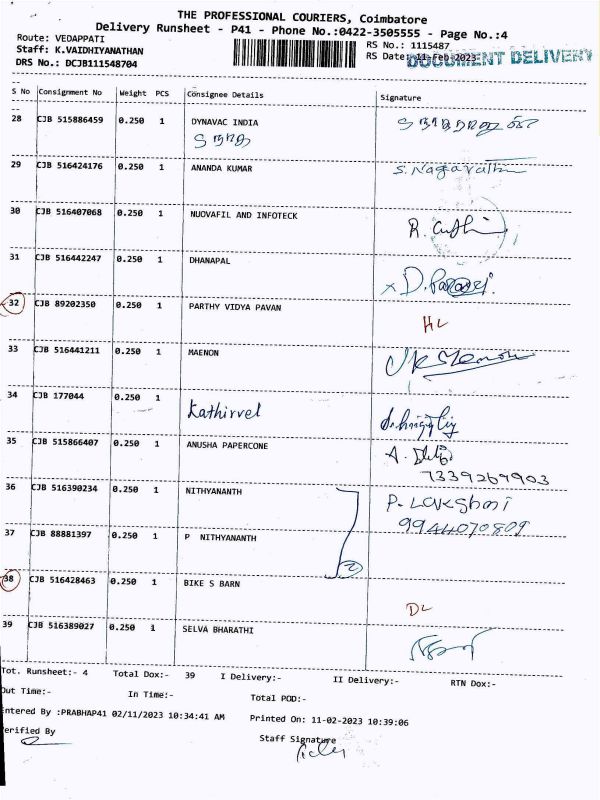 THE PROFESSIONAL COURIERS, Coimbatore
Delivery Runsheet - P41 - Phone No.:0422-3505555 - Page No.:4
Route: VEDAPPATI
RS No.: 1115487
Staff: K.VAIDHIYANATHAN
RS Date: 11 Feb 2023
DOCUMENT DELIVERY
DRS No.: DCJB111548704
S No Consignment No Weight PCS Consignee Details Signature
28 CJB 515886459 0.250 1 DYNAVAC INDIA
29 CJB 516424176 0.250 1 ANANDA KUMAR S. Nagavathi
30 CJB 516407068 0.250 1 NUOVAFIL AND INFOTECK
31 CJB 516442247 0.250 1 DHANAPAL
32 CJB 89202350 0.250 1 PARTHY VIDYA PAVAN
HL
33 CJB 516441211 0.250 1 MAENON
34 CJB 177044 0.250 1
Kathirvel
35 CJB 515866407 0.250 1 ANUSHA PAPERCONE
7339269903
36 CJB 516390234 0.250 1 NITHYANANTH
9944070809
37 CJB 88881397 0.250 1 P NITHYANANTH
2
38 CJB 516428463 0.250 1 BIKE S BARN
DL
39 CJB 516389027 0.250 1 SELVA BHARATHI
Tot. Runsheet:- 4 Total Dox:- 39 I Delivery:- II Delivery:- RTN Dox:-
Out Time:- In Time:- Total POD:-
Entered By :PRABHAP41 02/11/2023 10:34:41 AM Printed On: 11-02-2023 10:39:06
Verified By Staff Signature